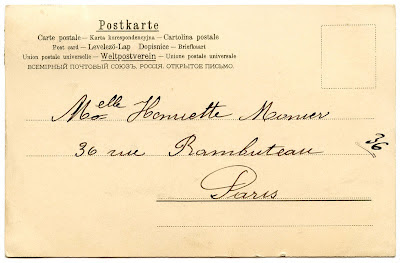 Postkarte
Carte postale — Karta korespondencyjna — Cartolina postale
Post card — Levelező-Lap Dopisnice — Briefkaart
Union postale universelle — Weltpostverein — Unione postale universale
ВСЕМІРНЫЙ ПОЧТОВЫЙ СОЮЗЪ, РОССІЯ. ОТКРЫТОЕ ПИСЬМО.
Melle Henriette Monier
36 rue Rambuteau
36
Paris